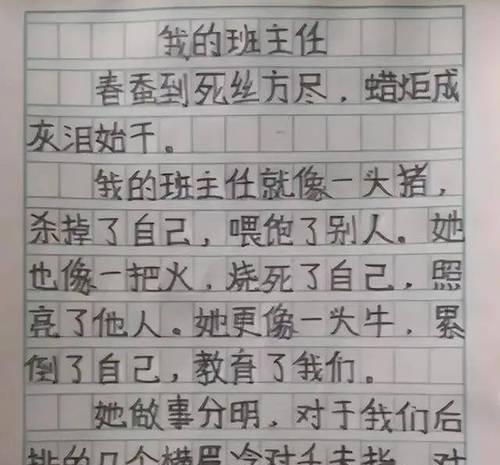 我的班主任
春蚕到死丝方尽，蜡炬成
灰泪始干。
我的班主任就像一头猪，
杀掉了自己，喂饱了别人。她
也像一把火，烧死了自己，照
亮了他人。她更像一头牛，累
倒了自己，教育了我们。
她做事分明，对于我们后
排的几个横眉冷对千夫指，对